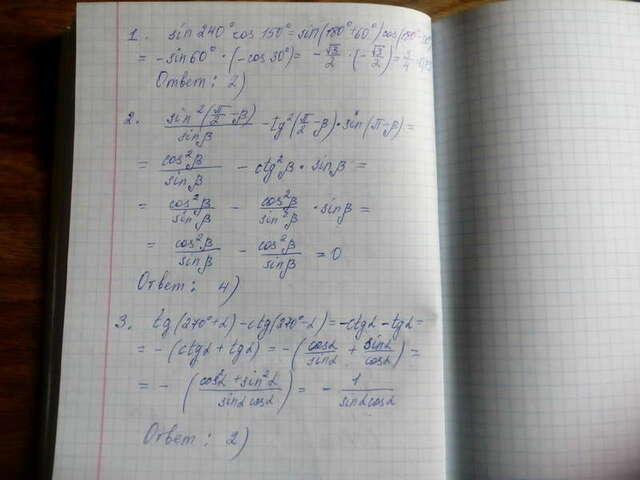 1. sin 240° cos 150° = sin(180°+60°) cos(180°-30°)
= -sin 60° · (-cos 30°) = -√3/2 · (-√3/2) = 3/4
Ответ: 2)
2. sin²(π/2-β)/sinβ - tg²(π/2-β) · sin(π-β) =
= cos²β/sinβ - ctg²β · sinβ =
= cos²β/sinβ - cos²β/sin²β · sinβ =
= cos²β/sinβ - cos²β/sinβ = 0
Ответ: 4)
3. tg(270°+α) - ctg(270°-α) = -ctgα - tgα =
= -(ctgα + tgα) = -(cosα/sinα + sinα/cosα) =
= -(cos²α + sin²α/sinα cosα) = - 1/sinα cosα
Ответ: 2)